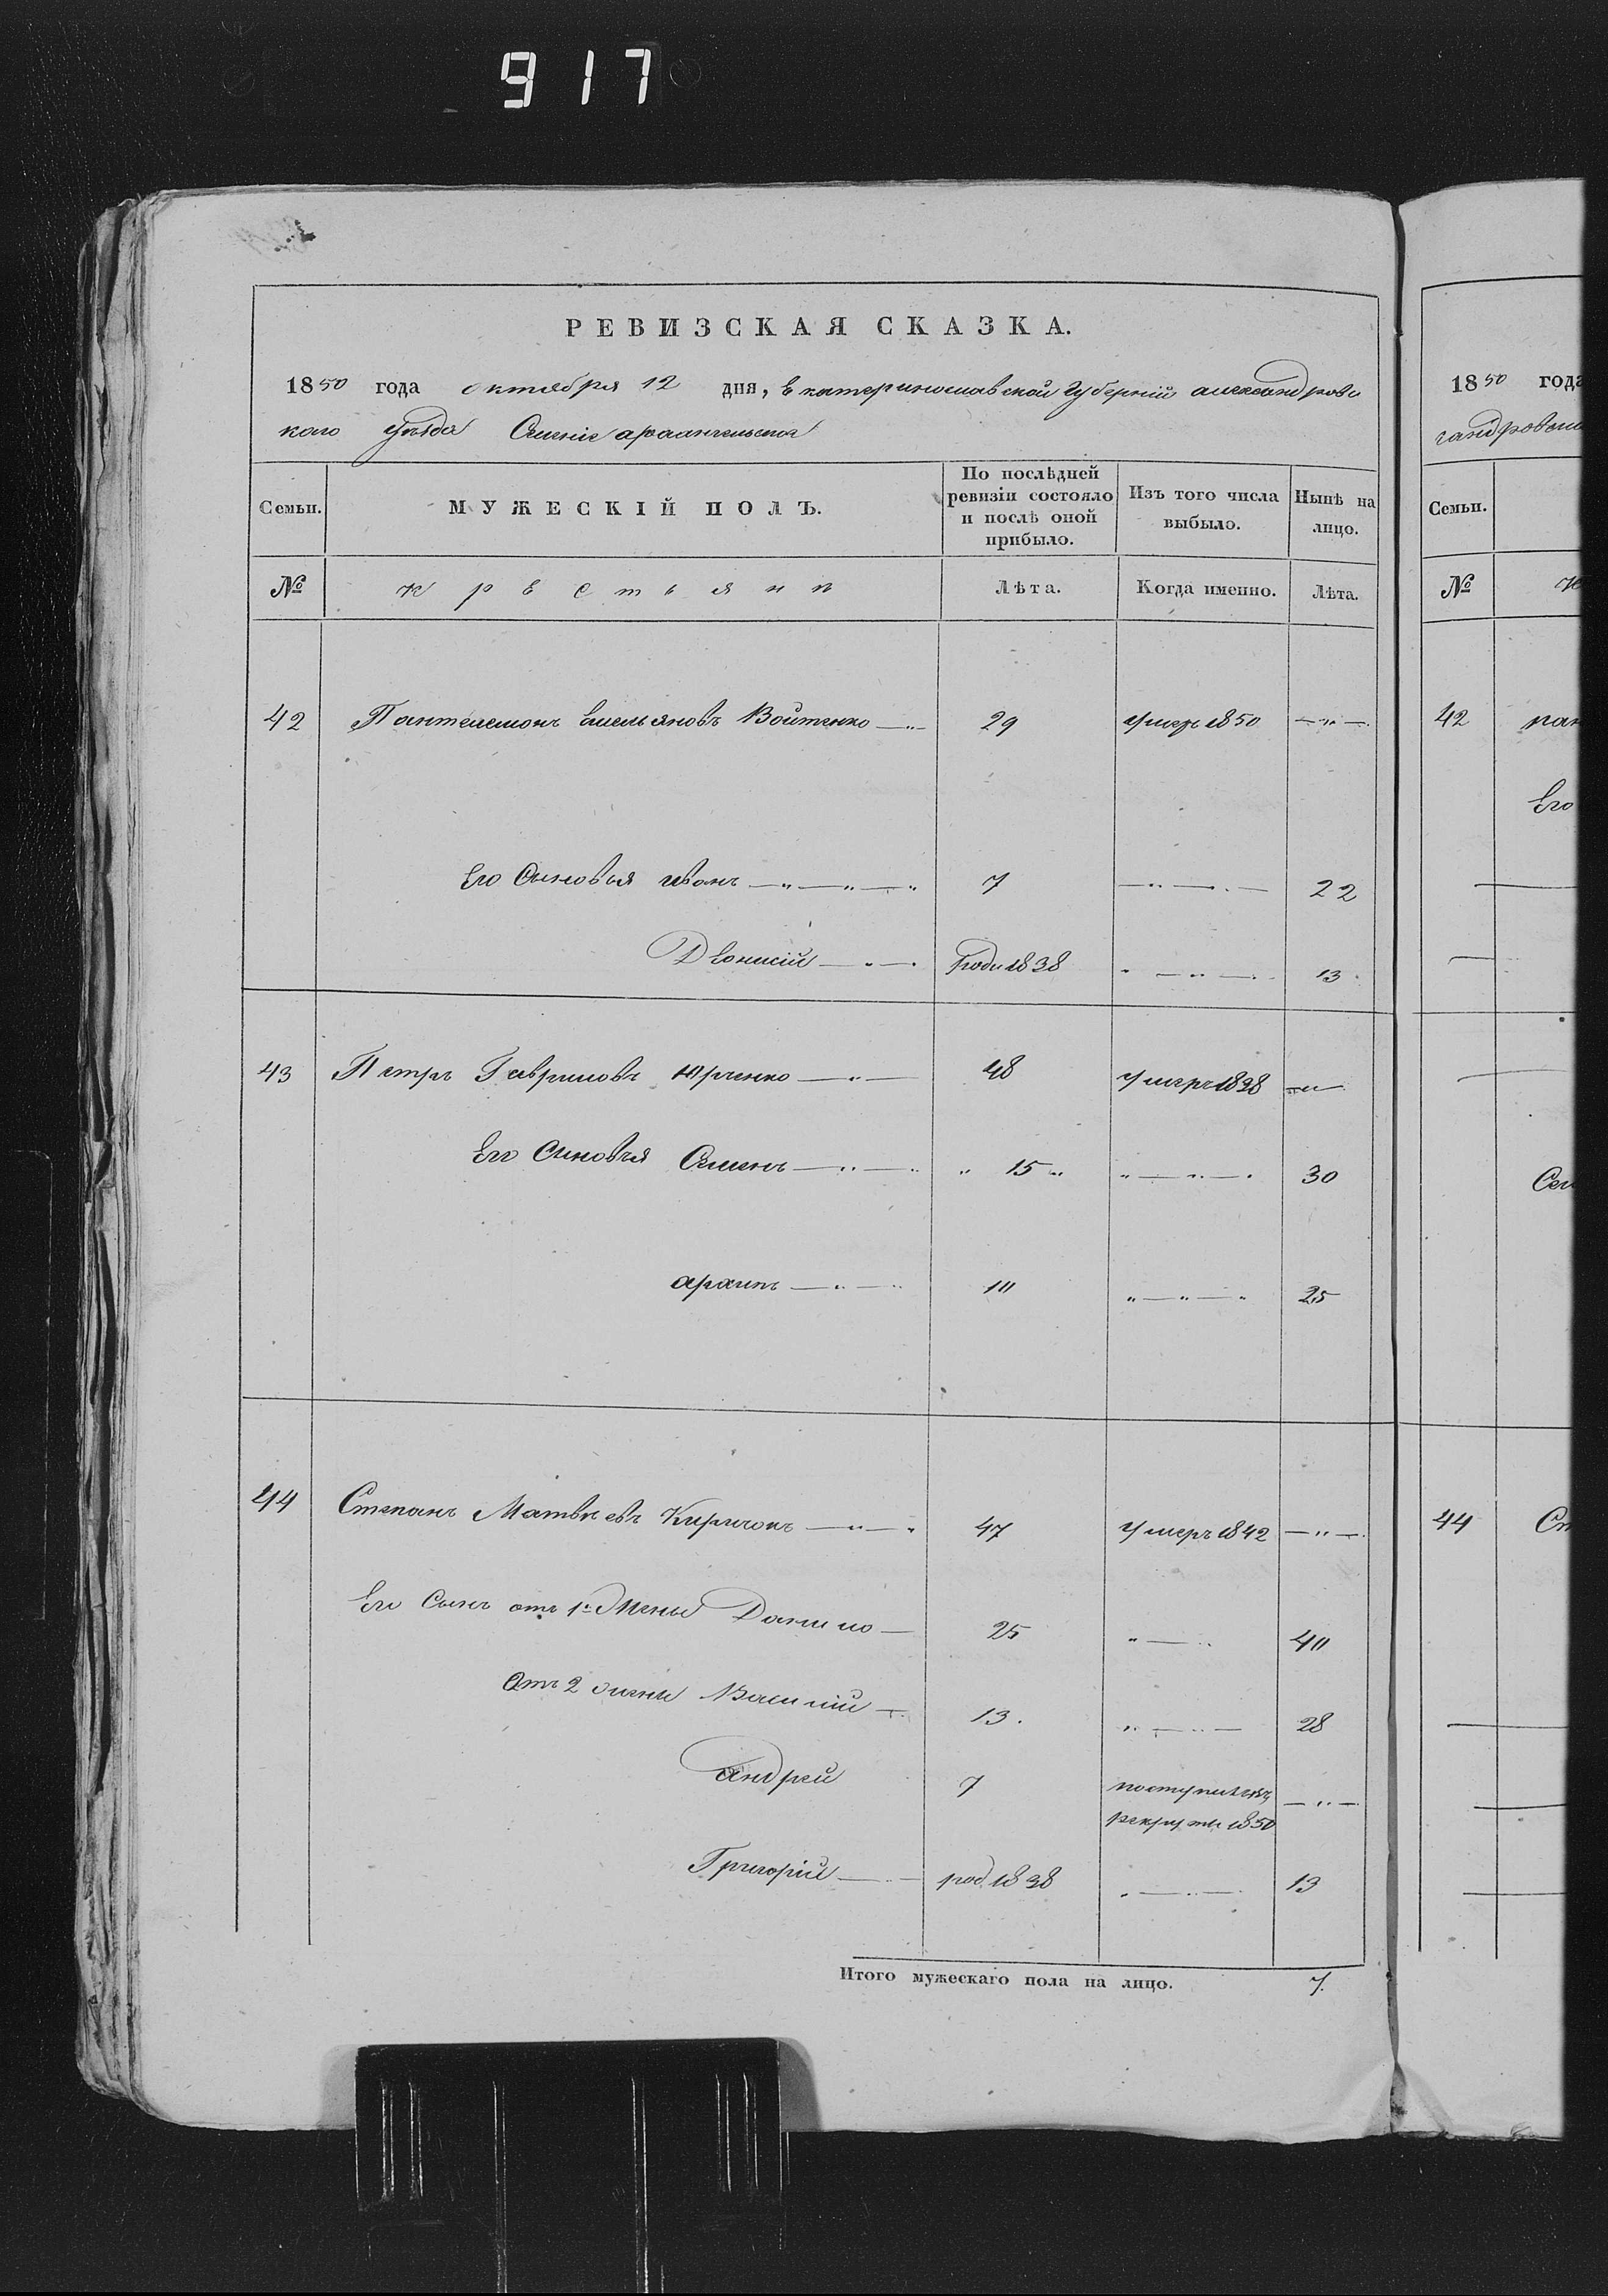 917
РЕВИЗСКАЯ СКАЗКА.
1850 года октября 12 дня, Екатеринославской Губерніи александровс
каго уѣзда Селенія архангельскаго
Семьи. МУЖЕСКІЙ ПОЛЪ. По послѣдней ревизіи состояло и послѣ оной прибыло. Изъ того числа выбыло. Нынѣ на лицо.
№ крестьяни Лѣта. Когда именно. Лѣта.
42 Пантелемонъ Емельяновъ Войтенко 29 умеръ 1850
Его Сыновья иванъ 7 22
Деонисій роди 1838 13
43 Петръ Гавриловъ Юрченко 48 умеръ 1838
Его Синовья Семенъ 15 30
архипъ 10 25
44 Степанъ Матвѣевъ Киричокъ 47 умеръ 1842
Его Сынъ отъ 1й жены Данило 25 40
Отъ 2 жены Василій 13. 28
андрей 7 поступилъ въ
рекруты 1850
Григорій род. 1838 13
Итого мужескаго пола на лицо. 7.
1850 года
сандровска
Семьи.
№ к
42 пан
Его
Сем
44 Ст